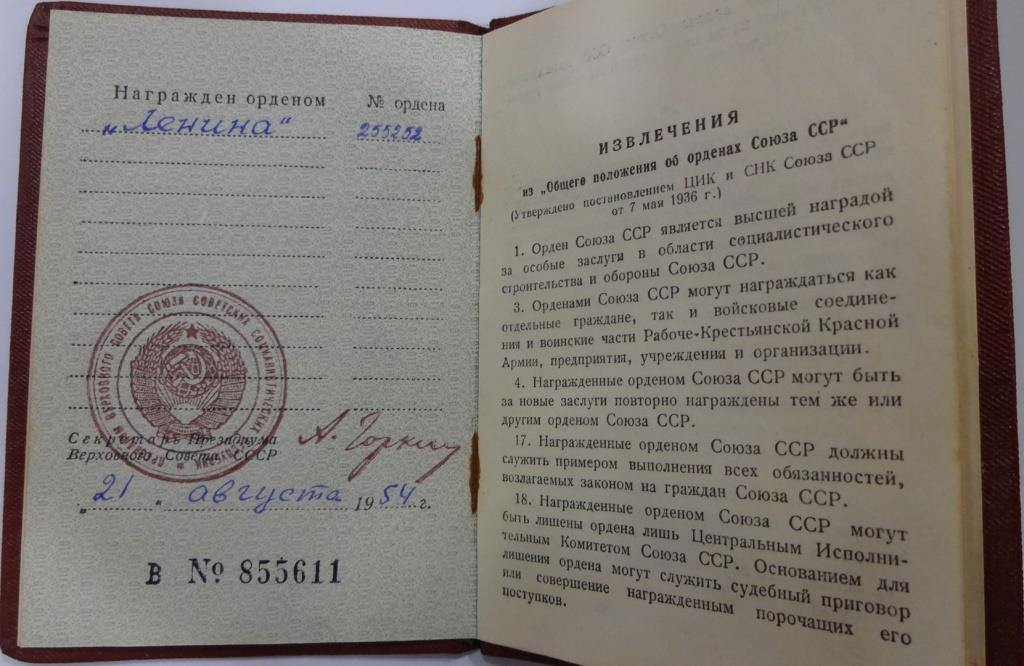 Награжден орденом № ордена
„Ленина“ 255252
ВЕРХОВНОГО СОВЕТА СОЮЗА СОВЕТСКИХ СОЦИАЛИСТИЧЕСКИХ
Секретарь Президиума
Верховного Совета СССР
А. Горкин
„21“ августа 1954 г.
В № 855611
ИЗВЛЕЧЕНИЯ
из „Общего положения об орденах Союза ССР“
(Утверждено постановлением ЦИК и СНК Союза ССР
от 7 мая 1936 г.)
1. Орден Союза ССР является высшей наградой
за особые заслуги в области социалистического
строительства и обороны Союза ССР.
3. Орденами Союза ССР могут награждаться как
отдельные граждане, так и войсковые соедине-
ния и воинские части Рабоче-Крестьянской Красной
Армии, предприятия, учреждения и организации.
4. Награжденные орденом Союза ССР могут быть
за новые заслуги повторно награждены тем же или
другим орденом Союза ССР.
17. Награжденные орденом Союза ССР должны
служить примером выполнения всех обязанностей,
возлагаемых законом на граждан Союза ССР.
18. Награжденные орденом Союза ССР могут
быть лишены ордена лишь Центральным Исполни-
тельным Комитетом Союза ССР. Основанием для
лишения ордена могут служить судебный приговор
или совершение награжденным порочащих его
поступков.